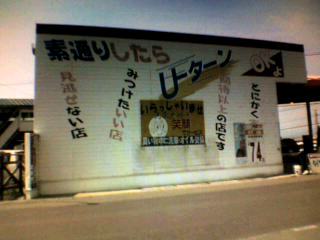 素通りしたら
Uターン
OKよ
見逃せない店
みつけたいい店
いらっしゃいませ
笑顔
期待以上の店です
とにかく
74